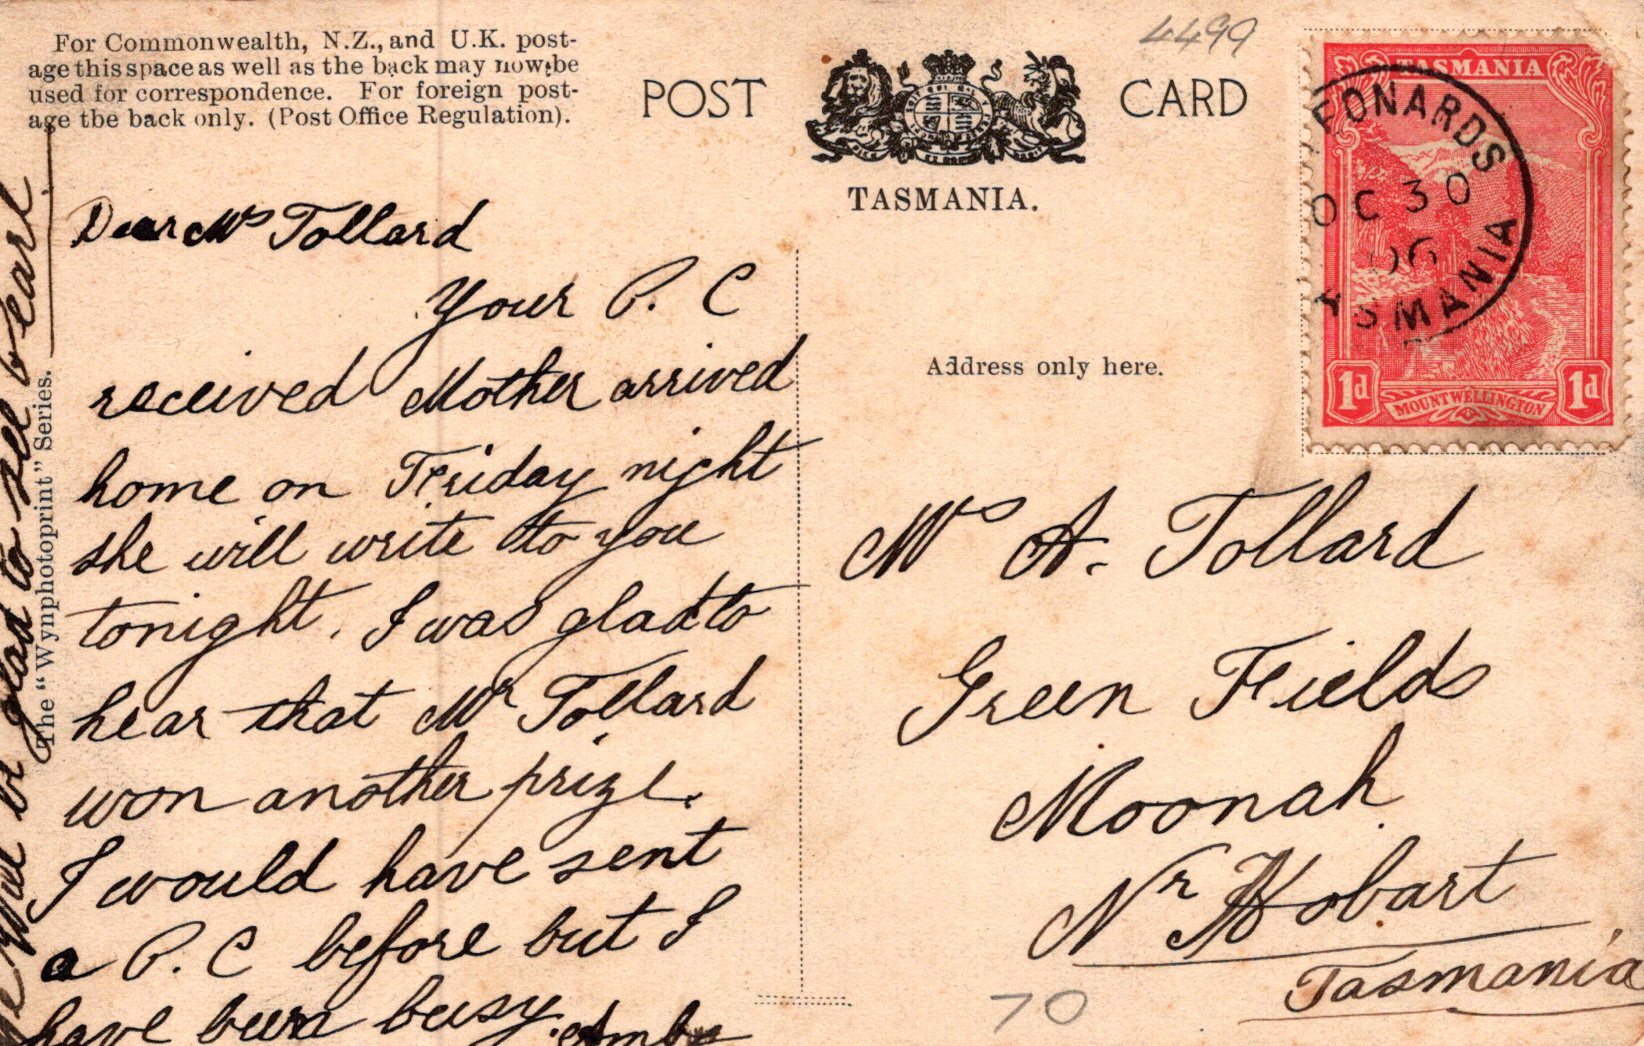 For Commonwealth, N.Z., and U.K. post-
age this space as well as the back may now be
used for correspondence. For foreign post-
age the back only. (Post Office Regulation).
POST CARD
TASMANIA.
4499
TASMANIA
EONARDS
OC 30
06
ASMANIA
1d MOUNT WELLINGTON 1d
Dear Mrs Tollard
Your P. C
received Mother arrived
home on Friday night
she will write to you
tonight. I was glad to
hear that Mr Tollard
won another prize.
I would have sent
a P. C before but I
have been busy.
will be glad to see bearl.
The "Wynphotoprint" Series.
Address only here.
Mrs A. Tollard
Green Fields
Moonah
Nr Hobart
Tasmania
70